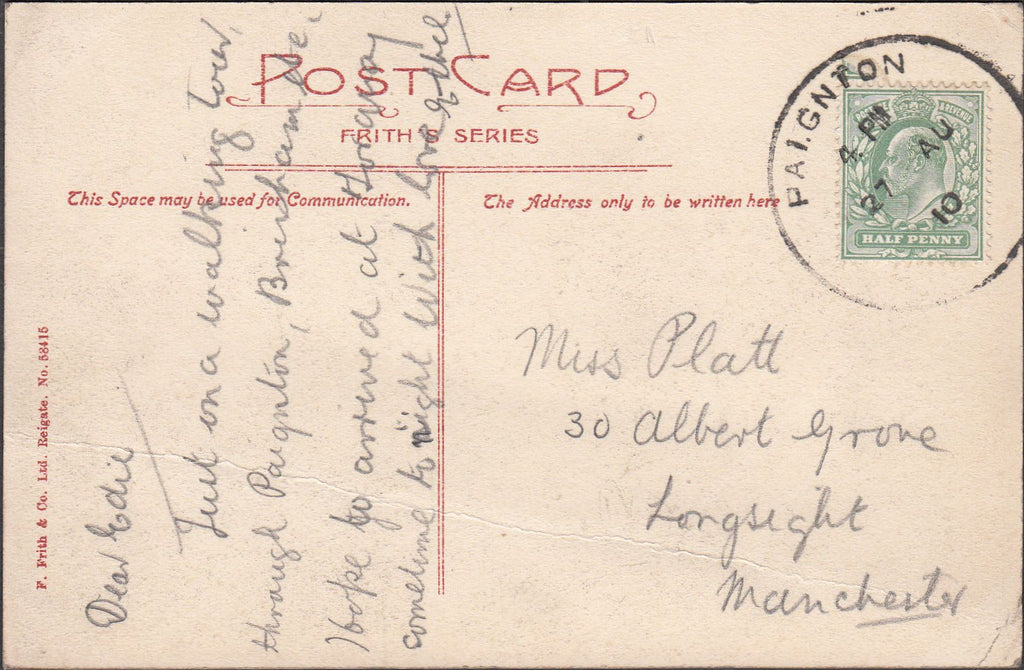 POST CARD
FRITH'S SERIES
This Space may be used for Communication.
The Address only to be written here
PAIGNTON
4. PM
27 AU
10
& REVENUE
HALF PENNY
Miss Platt
30 Albert Grove
Longsight
Manchester
Dear Edie
Just on a walking tour,
through Paignton, Brixham etc.
I hope to arrived at Torquay
sometime to night With love Ethel
F. Frith & Co. Ltd. Reigate. No. 58415